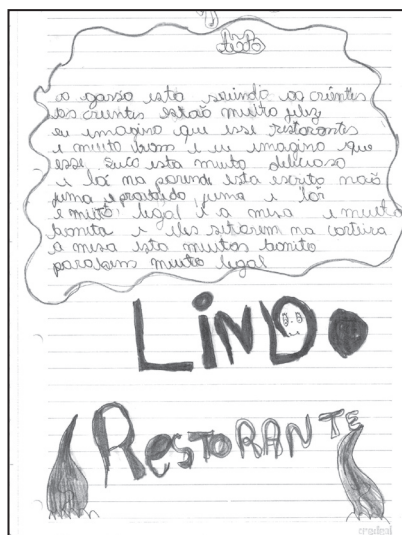 Texto
o garso esta seuindo os crientes
os crientes estão muito feliz
eu imagino que esse restorantes
e muito bom e eu imagino que
esse suco esta muito delicioso
e lá na parende esta escrito não
fuma e proibido fuma e lá
e muito legal e a mesa e muito
bonita e eles na
a mesa esta muitos bonito
parabens muito legal
LINDO
RESTORANTE
credeal